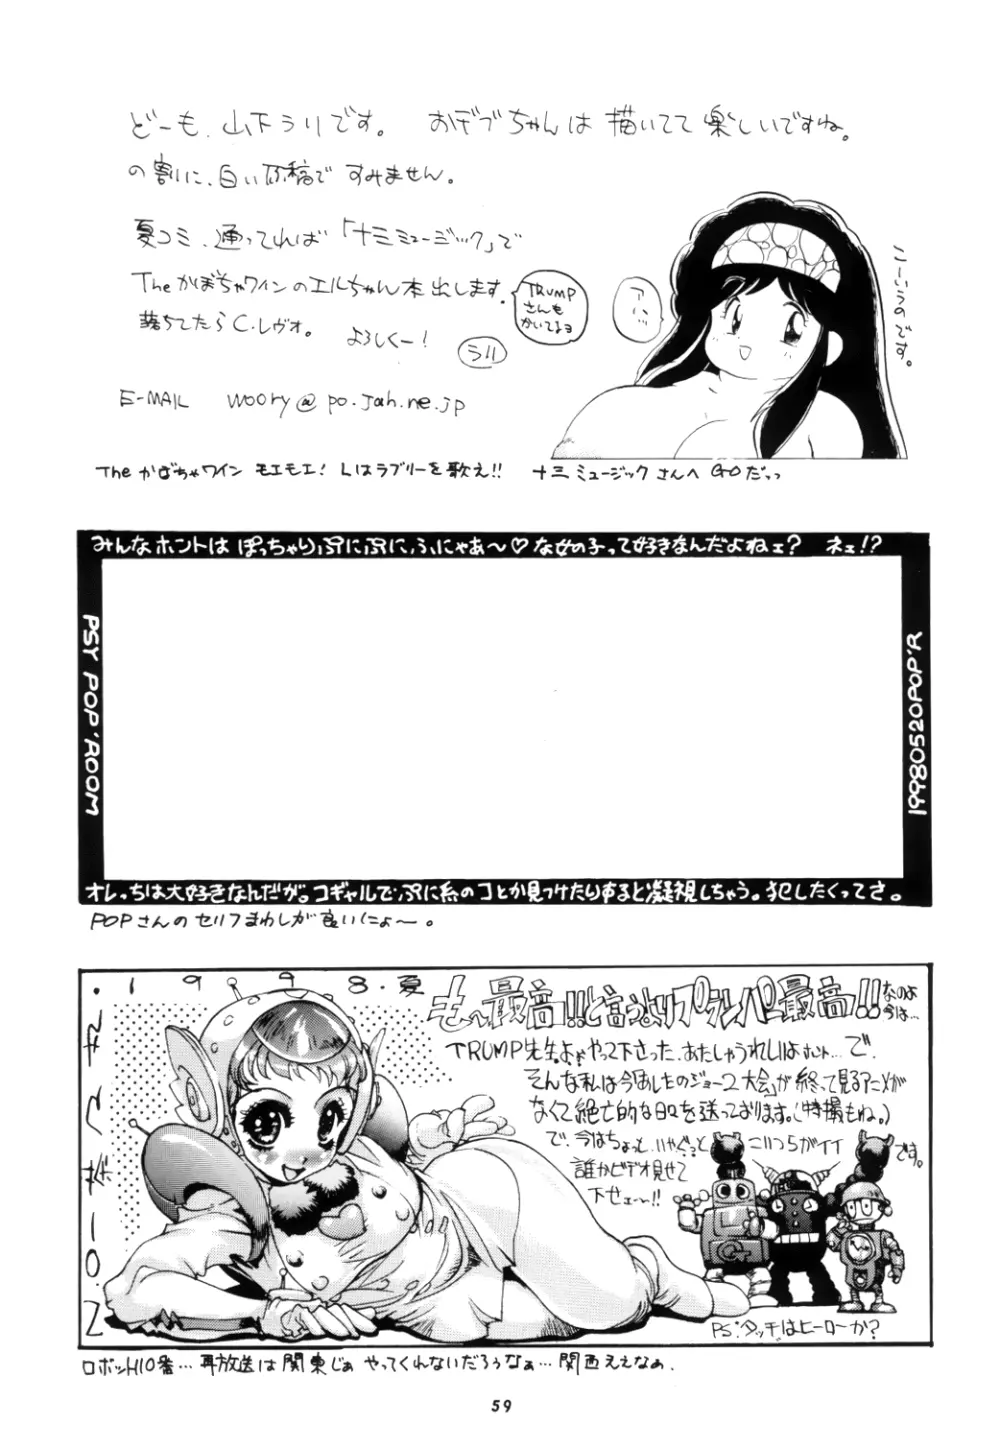 どーも、山下うりです。 おデブちゃんは描いてて楽しいですね。
の割に、白い原稿ですみません。
夏コミ、通ってれば「十三ミュージック」で
Theかぼちゃワインのエルちゃん本出します。
落ちてたらC.レヴォ。 よろしくー!
うり
TRUMP
さんも
かいてるヨ
こーいうのです。
E-MAIL woory@po.jah.ne.jp
Theかぼちゃワイン モエモエ! Lはラブリーを歌え!! 十三ミュージックさんへGOだっっ
みんなホントは ぽっちゃりぷにぷに、ふにゃあ〜♡な女の子って好きなんだよねェ? ネェ!?
PSY POP'ROOM
19980520POP'R
オレっちは大好きなんだが。コギャルで、ぷに系のコとか見つけたりすると凝視しちゃう。犯したくってさ。
POPさんのセリフまわしが良いにょ〜。
.1998.夏
も〜最高!!と言うよりプランパー最高!!なのよ
今は…
TRUMP先生よぉやって下さった、あたしゃうれしいよホント…で、
そんな私は今「あしたのジョー2大会」が終って見るアニメが
なくて絶亡的な日々を送っております。(特撮もね。)
で、今はちょっと
こいつらがイイ
です。
誰かビデオ見せて
下せェ〜!!
PS.タッチはヒーローか?
ロボット110番…再放送は関東じゃやってくれないだろうなぁ…関西ええなぁ.
59